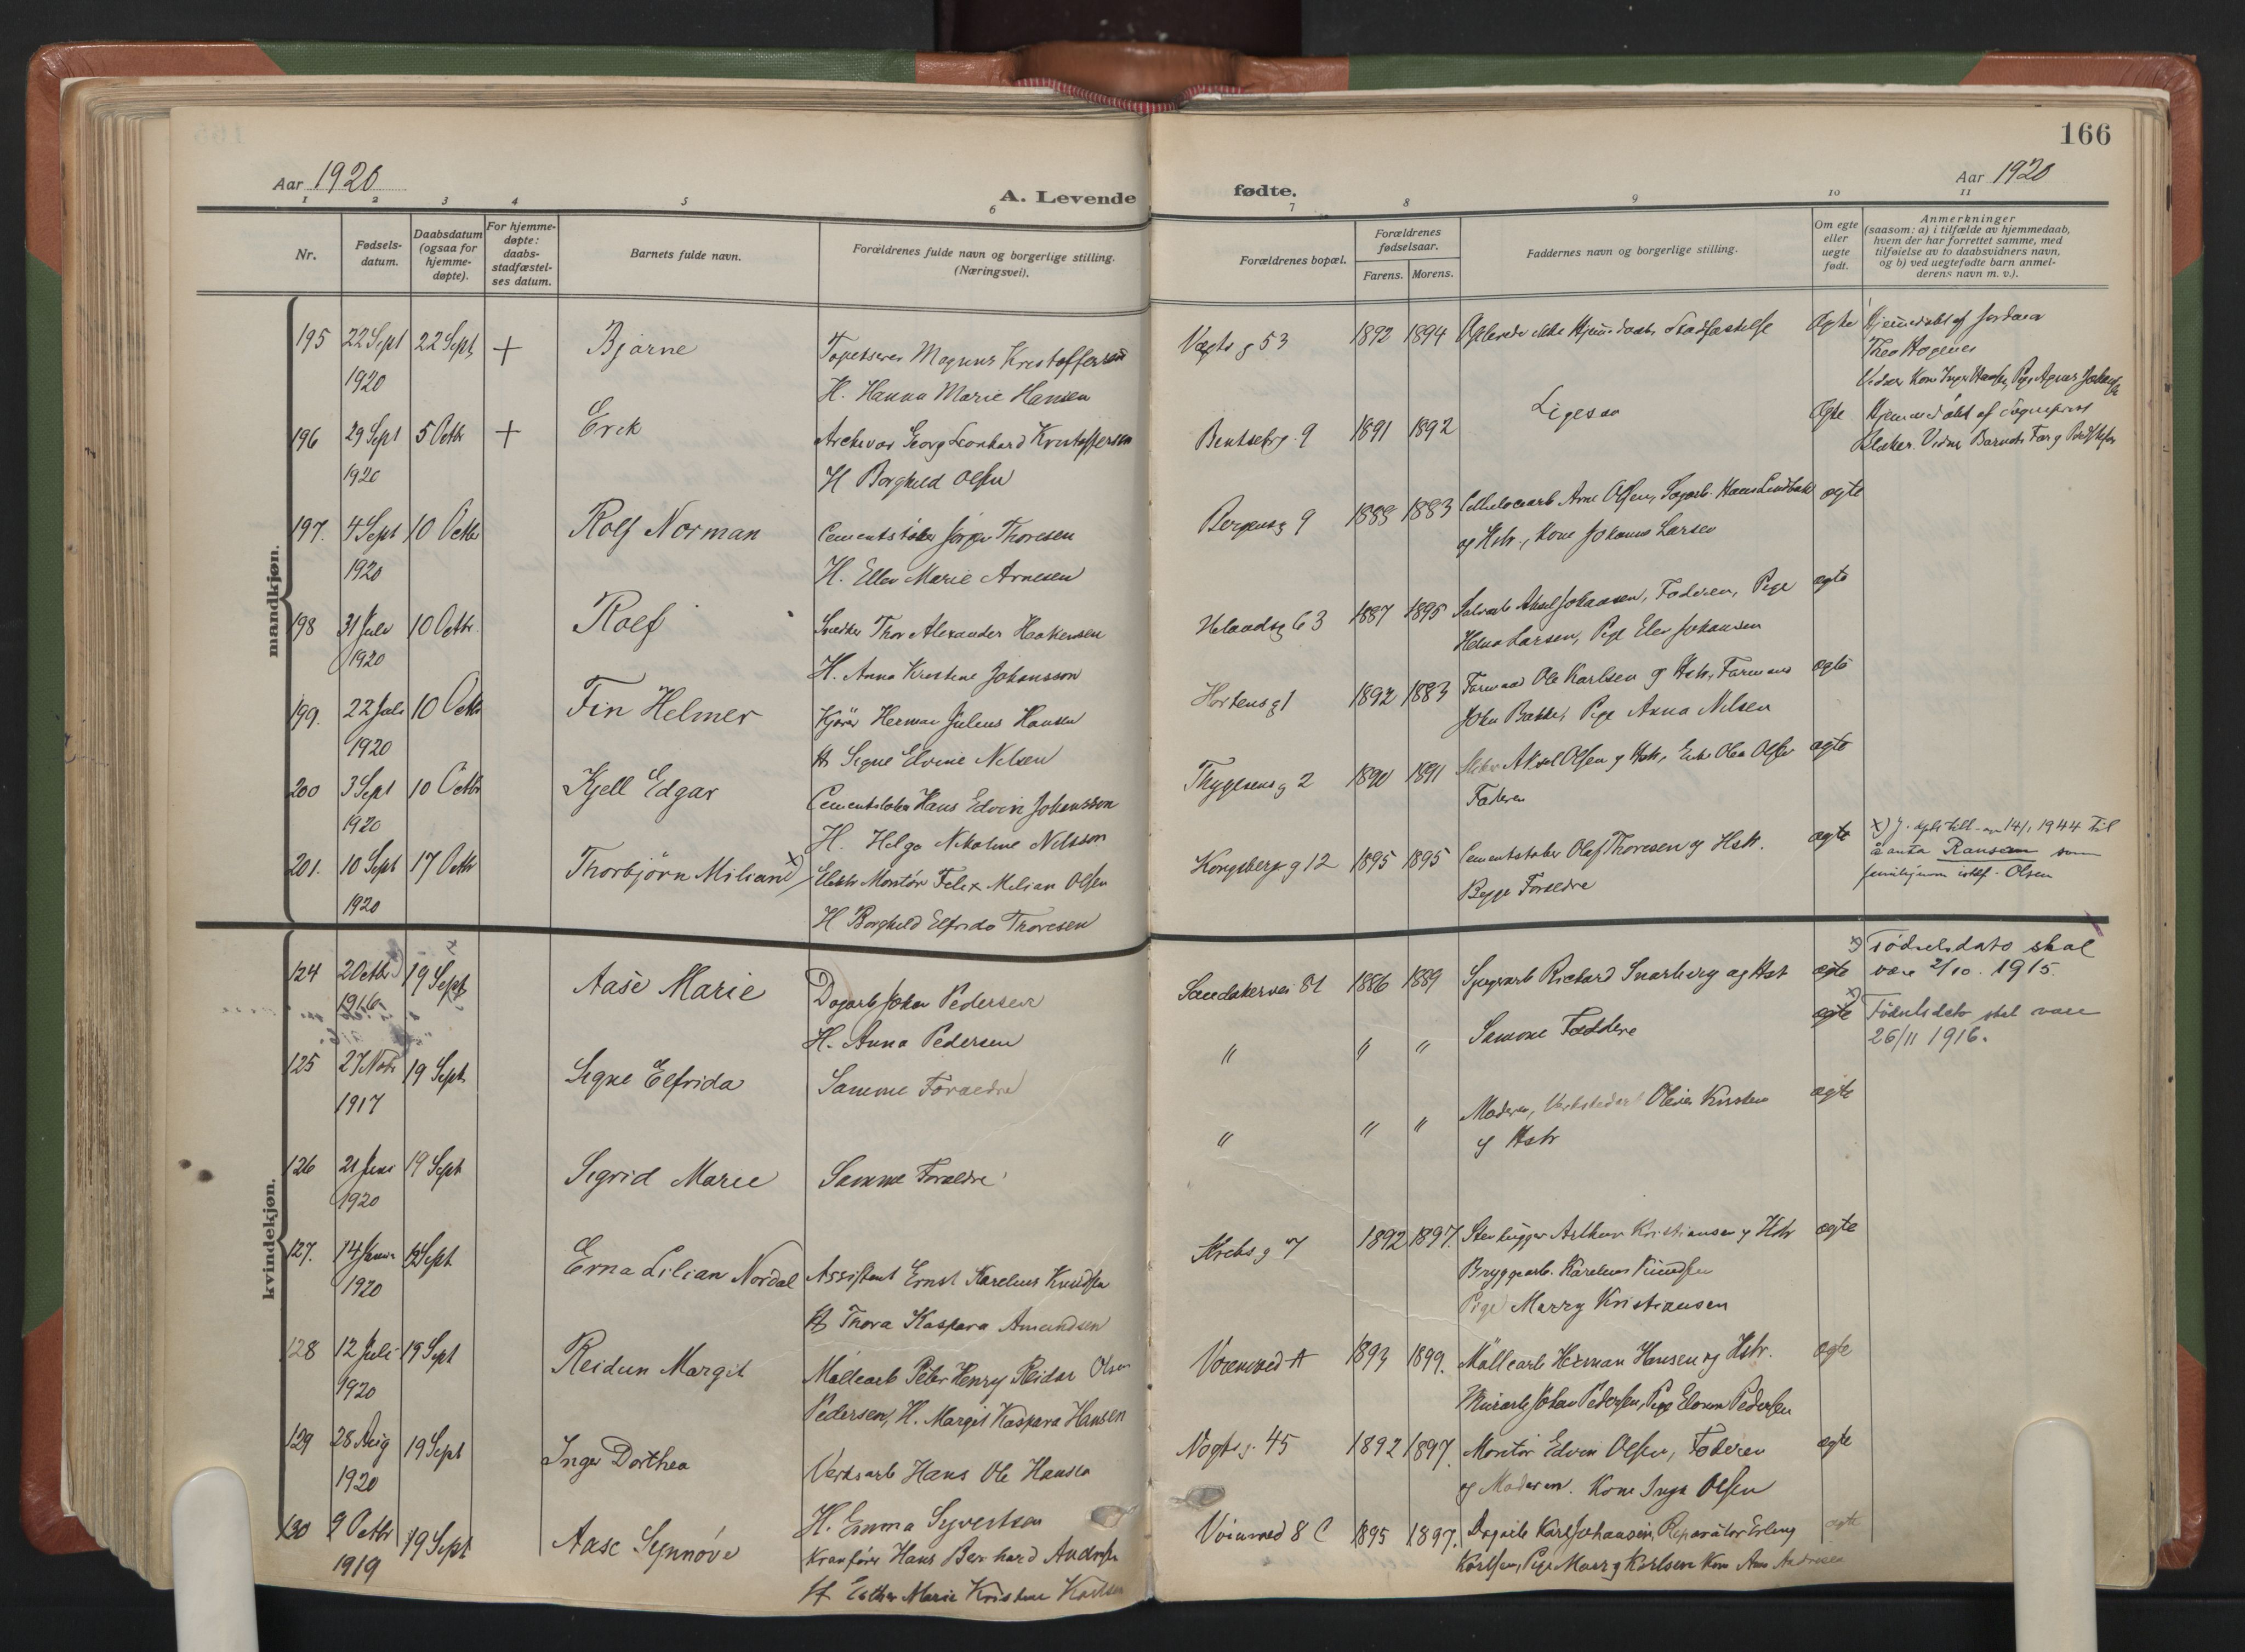 166
Aar 1920
A. Levende
fødte.
Aar 1920
1 2 3 4 5 6 7 8 9 10 11
Nr.
Fødsels-
datum.
Daabsdatum
(ogsaa for
hjemme-
døpte).
For hjemme-
døpte:
daabs-
stadfæstel-
ses datum.
Barnets fulde navn.
Forældrenes fulde navn og borgerlige stilling.
(Næringsvei).
Forældrenes bopæl.
Forældrenes
fødselsaar.
Farens. Morens.
Faddernes navn og borgerlige stilling.
Om egte
eller
uegte
født.
Anmerkninger
(saasom: a) i tilfælde av hjemmedaab,
hvem der har forrettet samme, med
tilføielse av to daabsvidners navn,
og b) ved uegtefødte barn anmel-
derens navn m. v.).
mandkjøn.
195 22 Sept 22 Sept + Bjarne
1920
Tapetserer Magnus Kristoffersen
H. Hanna Marie Hansen
Vogts g 53 1892 1894 Hjemdaabs Stadfæstelse Ægte Hjemmedøbt af Jordmor
Theo
196 29 Sept 5 Octbr + Erik
1920
Arkivar Georg Leonhard Kristoffersen
H Borghild Olsen
Bentsebrg. 9 1891 1892 Ligesaa Ægte Hjemmedøbt af Sognepræst
Barnets Far og
197. 4 Sept 10 Octbr Rolf Norman
1920
Cementstøber Jørgen Thoresen
H. Ellen Marie Arnesen
Bergensg 9 1883 Arne Olsen, Hans Lindbak ægte
og Hstr., Kone Johanne Larsen
198 31 Juli 10 Octbr. Rolf
1920
Snedker Thor Alexander Haakensen
H. Anna Kristine Johansson
Helandsg 63 1887 1895 Aksel Johansen, Faderen, Pige ægte
Helna Larsen, Pige Elen Johansen
199. 22 Juli 10 Octbr Fin Helmer
1920
Kjører Herman Julius Hansen
H Signe Elvine Nilsen
Hortensg 1 1892 1883 Formand Ole Karlsen og Hstr, Formand ægte
John Bakke, Pige Anna Nilsen
200 3 Sept 10 Octbr Kjell Edgar
1920
Cementstøber Hans Edvin Johansson
H. Helga Nikoline Nilsson
Thygesensg 2 1890 1891 Aksel Olsen og Hstr, Enke Olea Olsen ægte
Faderen
201. 10 Sept 17 Octbr Thorbjørn Milian x)
1920
Elektr Montör Felix Milian Olsen
H Borghild Elfrida Thoresen
Kongsbergg 12 1895 1895 Cementstøber Olaf Thoresen og Hstr. ægte
Begge Forældre
x) 14/1 1944 til
å anta Ransem som
familienavn istef. Olsen
kvindekjøn.
124 2 Octbr 19 Sept x) Aase Marie
1916
Dagarb Johan Pedersen
H. Anna Pedersen
Sandakervei 81 1886 1889 Richard Snarberg og Hstr ægte
x) Fødselsdato skal
være 2/10. 1915.
125 27 Nov 19 Sept Signe Elfrida
1917
Samme Forældre
" " " Samme Faddere ægte
x) Fødselsdato skal være
26/11 1916.
126 21 Juni 19 Sept Sigrid Marie
1920
Samme Forældre
" " " Moderen, Verkstedarb Kirsten ægte
og Hstr
127. 14 19 Sept Erna Lilian Nordal
1920
Assistent Ernst Karelius Knudsen
H Thora Kaspara Amundsen
Krebs g 7 1892 1897. Stenhugger Arthur Kristiansen og Hstr ægte
Bryggearb. Karelius Knudsen
Pige Marry Kristiansen
128 12 Juli 19 Sept Reidun Margit
1920
Møllearb Peter Henry Reidar Olsen
Pedersen, H. Margit Kaspara Hansen
1893 1899. Møllearb Herman Hansen og Hstr. ægte
Murarb Johan Pedersen, Pige Pedersen
129 28 Aug 19 Sept Inger Dorthea
1920
Verksarb Hans Ole Hansen
H. Emma Syvertsen
Vogtsg. 45 1892 1897. Montör Edvin Olsen, Faderen ægte
og Moderen. Kone Inga Olsen
130 9 Octbr 19 Sept Aase Synnöve
1919
Kranförer Hans Bernhard Andresen
H Esther Marie Kristine Karlsen
8 C 1895 1897. Dagarb Karl Johansen, Reparatör Erling ægte
Karlsen, Pige Marry Karlsen Kone Andresen